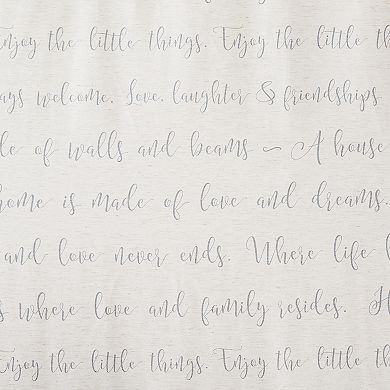 Enjoy the little things. Enjoy the little th
ays welcome. Love, laughter & friendships
le of walls and beams ~ A house
home is made of love and dreams.
and love never ends. Where life
s where love and family resides. H
Enjoy the little things. Enjoy the little th